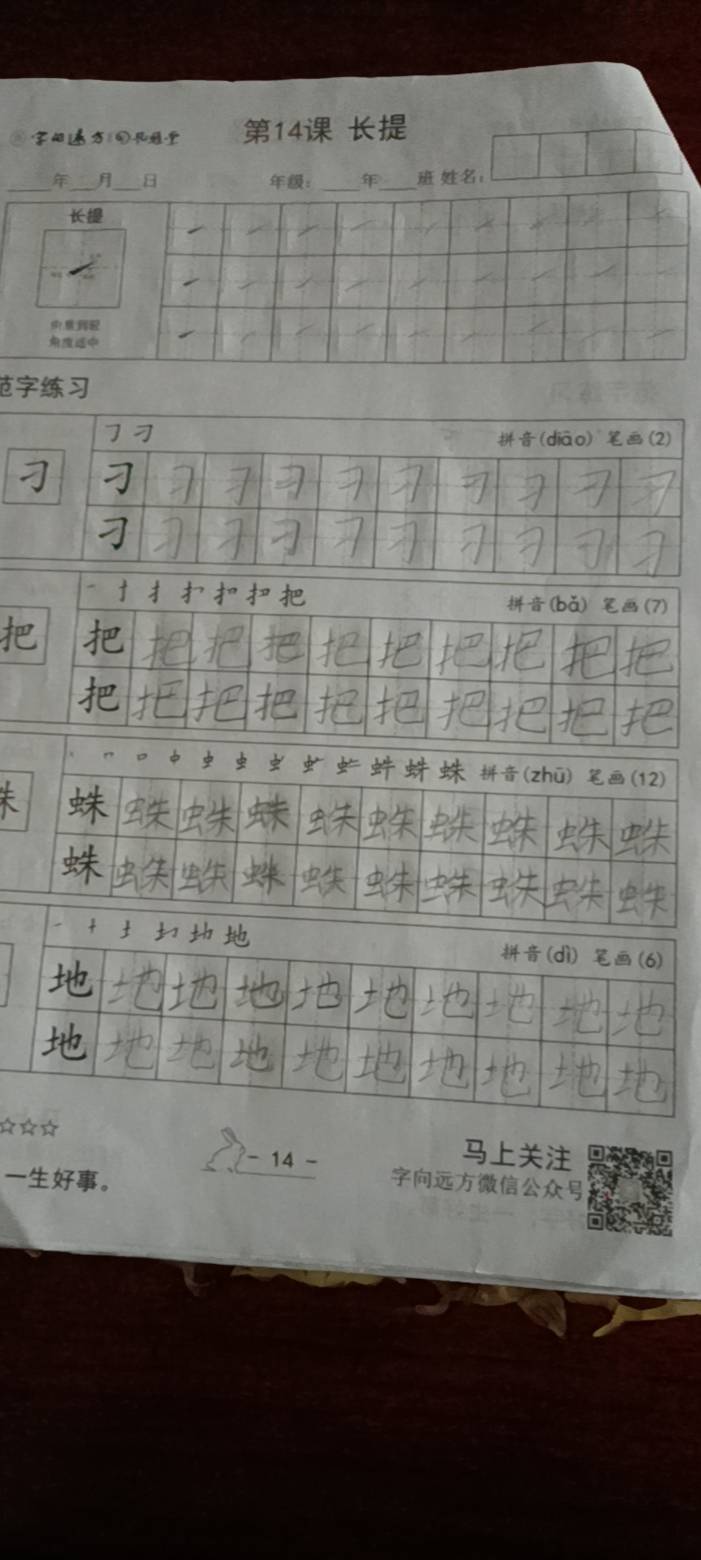 字向远方
第14课 长提
年 月 日 年级： 年 班 姓名：
长提
由重到轻
角度适中
范字练习
㇆ 刁 拼音(diāo) 笔画(2)
刁 刁 刁 刁 刁 刁 刁 刁 刁 刁 刁
刁 刁 刁 刁 刁 刁 刁 刁 刁 刁
把 拼音(bǎ) 笔画(7)
把 把 把 把 把 把 把 把 把 把 把
把 把 把 把 把 把 把 把 把 把
蛛 拼音(zhū) 笔画(12)
蛛 蛛 蛛 蛛 蛛 蛛 蛛 蛛 蛛 蛛
蛛 蛛 蛛 蛛 蛛 蛛 蛛 蛛 蛛 蛛
地 拼音(dì) 笔画(6)
地 地 地 地 地 地 地 地 地 地
地 地 地 地 地 地 地 地 地 地
☆☆☆
一生好事。
- 14 -
马上关注
字向远方微信公众号